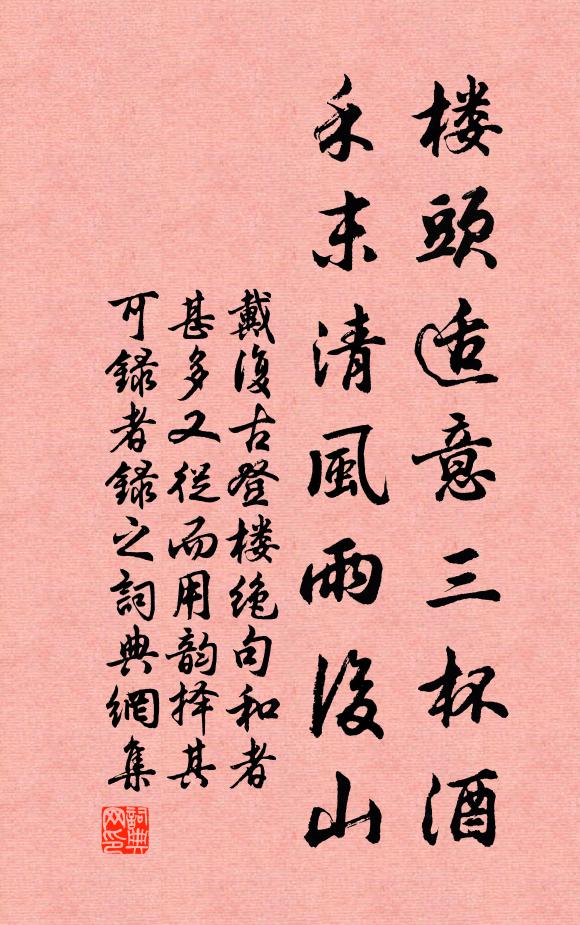 楼頭适意三杯酒
禾末清風雨後山
戴復古登楼絶句和者
甚多又從而用韵择其
可録者録之詞典網集
詞典
网印